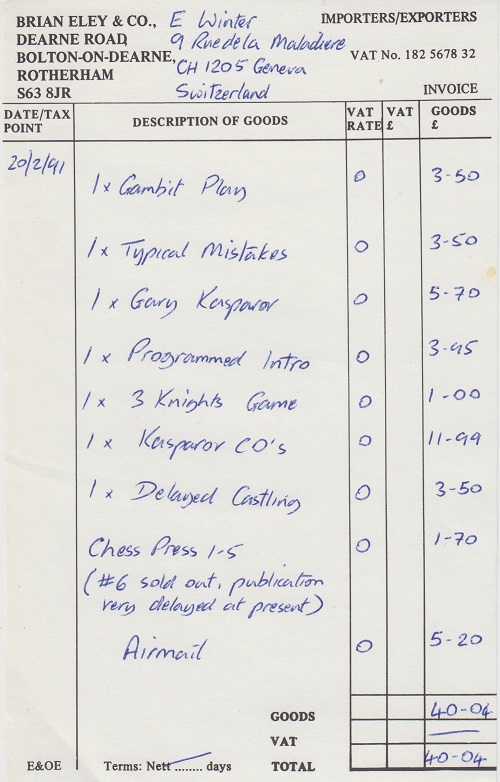 BRIAN ELEY & CO.,
DEARNE ROAD,
BOLTON-ON-DEARNE,
ROTHERHAM
S63 8JR
E Winter
9 Rue de la Maladiere
CH 1205 Geneva
Switzerland
IMPORTERS/EXPORTERS
VAT No. 182 5678 32
INVOICE
DATE/TAX POINT DESCRIPTION OF GOODS VAT RATE VAT £ GOODS £
20/2/91
1 x Gambit Play 0 3-50
1 x Typical Mistakes 0 3-50
1 x Gary Kasparov 0 5-70
1 x Programmed Intro 0 3-95
1 x 3 Knights Game 0 1-00
1 x Kasparov CO's 0 11-99
1 x Delayed Castling 0 3-50
Chess Press 1-5 0 1-70
(#6 sold out, publication
very delayed at present)
Airmail 0 5-20
GOODS 40-04
VAT
E&OE Terms: Nett ........ days TOTAL 40-04